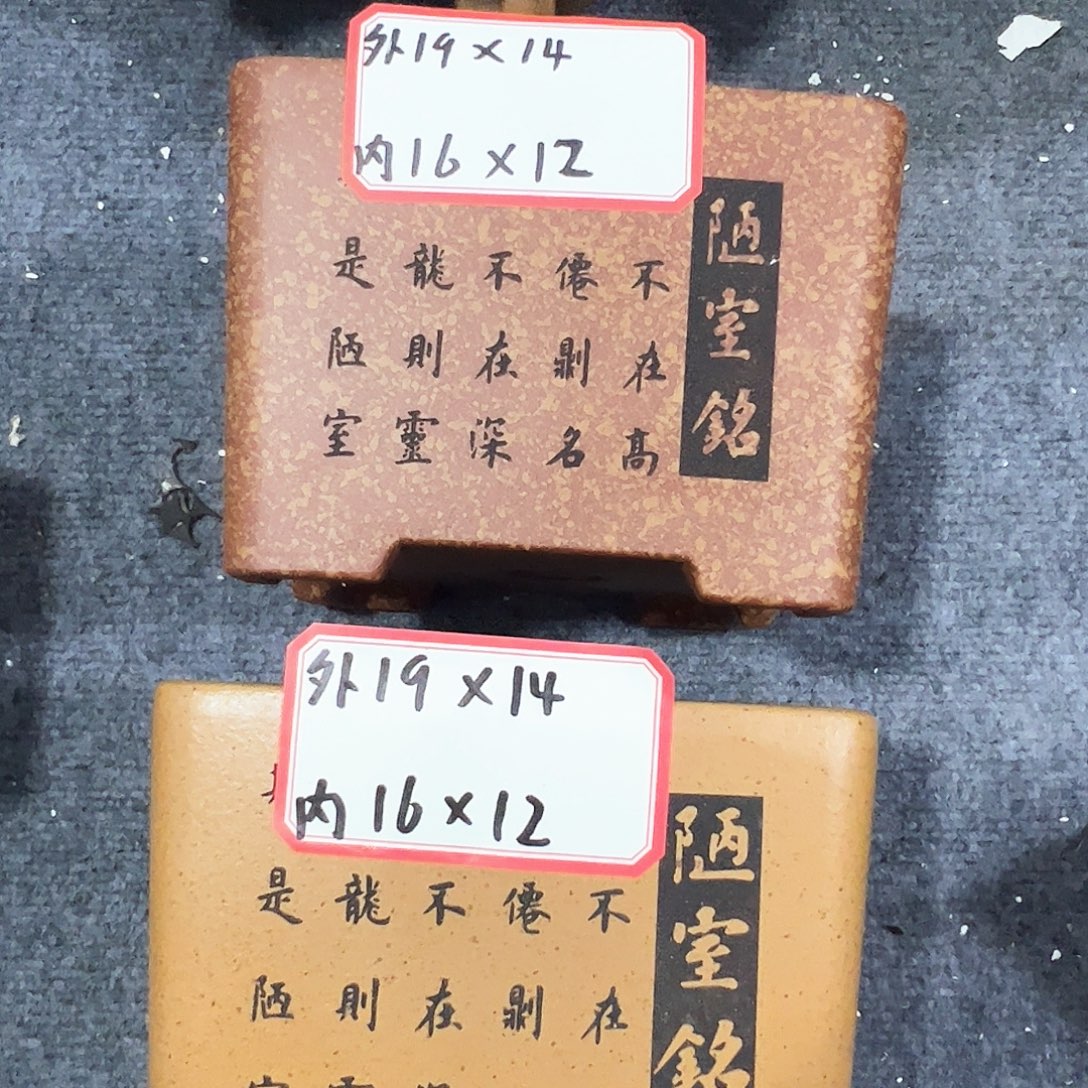 外19×14
内16×12
陋室銘
不在高
僊則名
不在深
龍則靈
是陋室
外19×14
内16×12
陋室銘
不在
僊則
不在
龍則
是陋